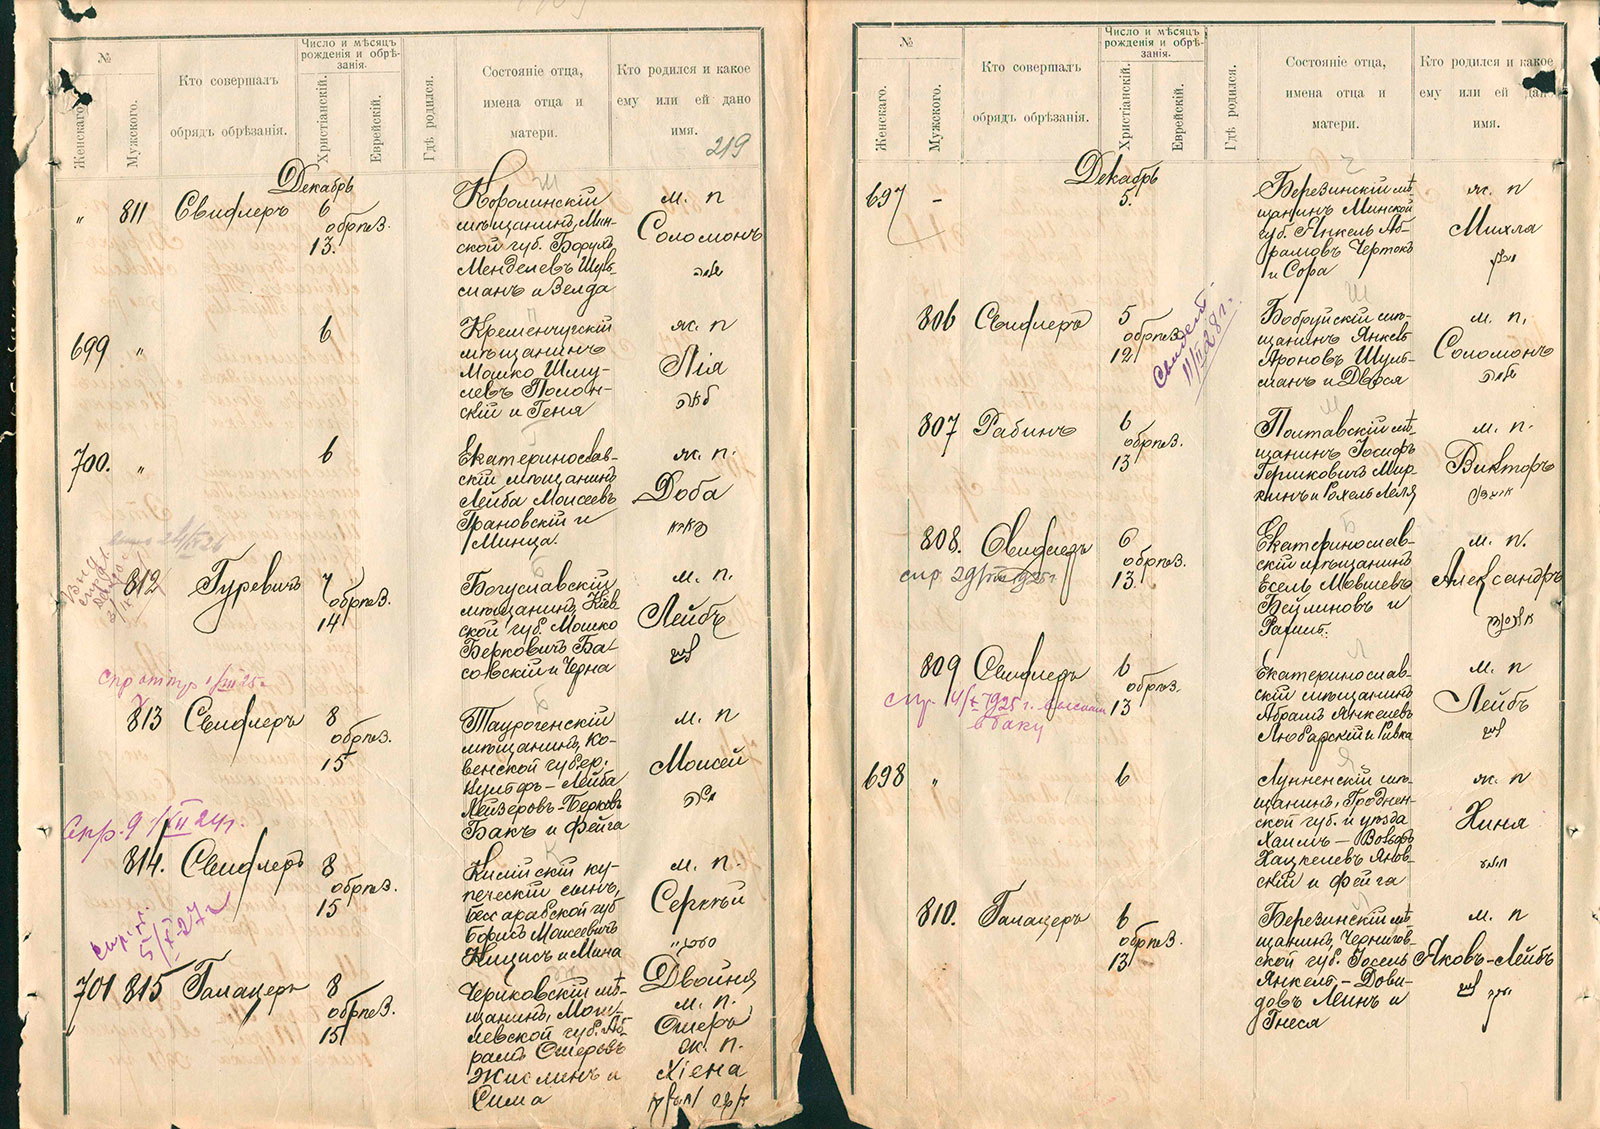 №
Женскаго.
Мужского.
Кто совершалъ
обрядъ обрѣзанія.
Число и мѣсяцъ
рожденія и обрѣ-
занія.
Христіанскій.
Еврейскій.
Гдѣ родился.
Состояніе отца,
имена отца и
матери.
Кто родился и какое
ему или ей дано
имя.
219
Декабрь
" 811 Свифлеръ 6
обрѣз.
13.
Королинскій
мѣщанинъ, Мин-
ской губ. Борухъ
Менделевъ Шуль-
сманъ и Зелда
м. п
Соломонъ
שלמה
699 " 6
Кременчугскій
мѣщанинъ
Мошко Шму-
левъ Полон-
скій и Геня
ж. п
Лія
לאה
700. " 6
Екатеринослав-
скій мѣщанинъ
Лейба Моисеевъ
Грановскій и
Минца.
ж. п.
Доба
812 Гуревичъ 7
обрѣз.
14
Богуславскій
мѣщанинъ, Кіев-
ской губ. Мошко
Берковичъ Ба-
совскій и Черна
м. п.
Лейбъ
לייב
813 Свифлеръ 8
обрѣз.
15
Таурогенскій
мѣщанинъ, Ко-
венской губер.
Лейба
Лейзеровъ-Берковъ
Бакъ и Фейга
м. п
Моисей
משה
Спр. 9/XII 24г.
814. Свифлеръ 8
обрѣз.
15
Килійскій ку-
печескій сынъ,
Бессарабской губ
Борисъ Моисеевичъ
Кицисъ и Мина
м. п.
Сергѣй
5/X-27г
701 815 Галацеръ 8
обрѣз.
15
Чериковскій мѣ-
щанинъ, Моги-
левской губ. Аб-
рамъ Ошеровъ
Жислинъ и
Сима
Двойня
м. п.
Ошеръ
ж. п.
Хіена
№
Женскаго.
Мужского.
Кто совершалъ
обрядъ обрѣзанія.
Число и мѣсяцъ
рожденія и обрѣ-
занія.
Христіанскій.
Еврейскій.
Гдѣ родился.
Состояніе отца,
имена отца и
матери.
Кто родился и какое
ему или ей дано
имя.
Декабрь
697 - 5.
Березинскій мѣ-
щанинъ Минской
губ. Янкель Аб-
рамовъ Чертокъ
и Сора
ж. п
Михля
806 Свифлеръ 5
обрѣз.
12.
11/II 28г.
Бобруйскій мѣ-
щанинъ Янкель
Ароновъ Шуль-
манъ и Двося
м. п.
Соломонъ
שלמה
807 Рабинъ 6
обрѣз.
13
Полтавскій мѣ-
щанинъ Іосифъ
Гершковичъ Мир-
кинъ и Рохель Лея
м. п.
Викторъ
808. Свифлеръ 6
обрѣз.
13.
спр. 29/VIII 1925г.
Екатеринослав-
скій мѣщанинъ
Есель Мовшевъ
Бейлиновъ и
Рахиль.
м. п.
Александръ
809 Свифлеръ 6
обрѣз.
13
спр. 14/X 1925г. выслана
въ Баку
Екатеринослав-
скій мѣщанинъ
Абрамъ Янкелевъ
Любарскій и Ривка
м. п
Лейбъ
לייב
698 " 6
Лунненскій мѣ-
щанинъ, Гроднен-
ской губ. и уѣзда
Хаимъ - Вольфъ
Хацкелевъ Янов-
скій и Фейга
ж. п
Хиня
810. Галацеръ 6
обрѣз.
13
Березинскій мѣ-
щанинъ, Чернигов-
ской губ. Іосель
Янкель-Дови-
довъ Леинъ и
Гнеся
м. п
Яковъ-Лейбъ
יעקב לייב